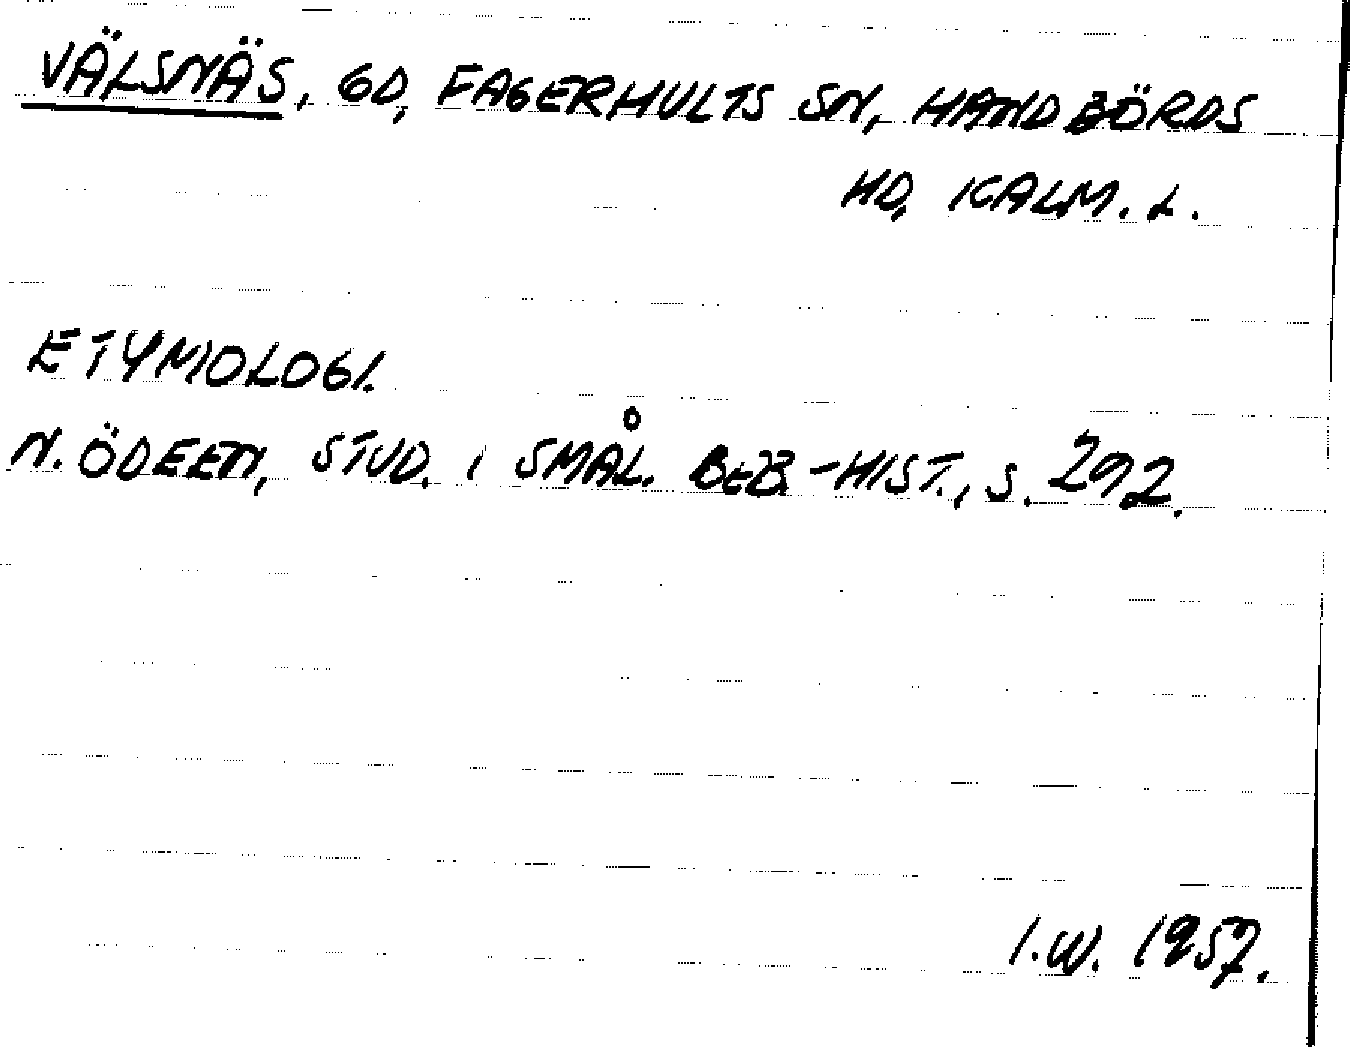 VÄLSNÄS, GD, FAGERHULTS SN, HANDBÖRDS
HD, KALM. L.
ETYMOLOGI.
N. ÖDEEN, STUD. I SMÅL. BEB.-HIST., S. 292.
I.W. 1957.